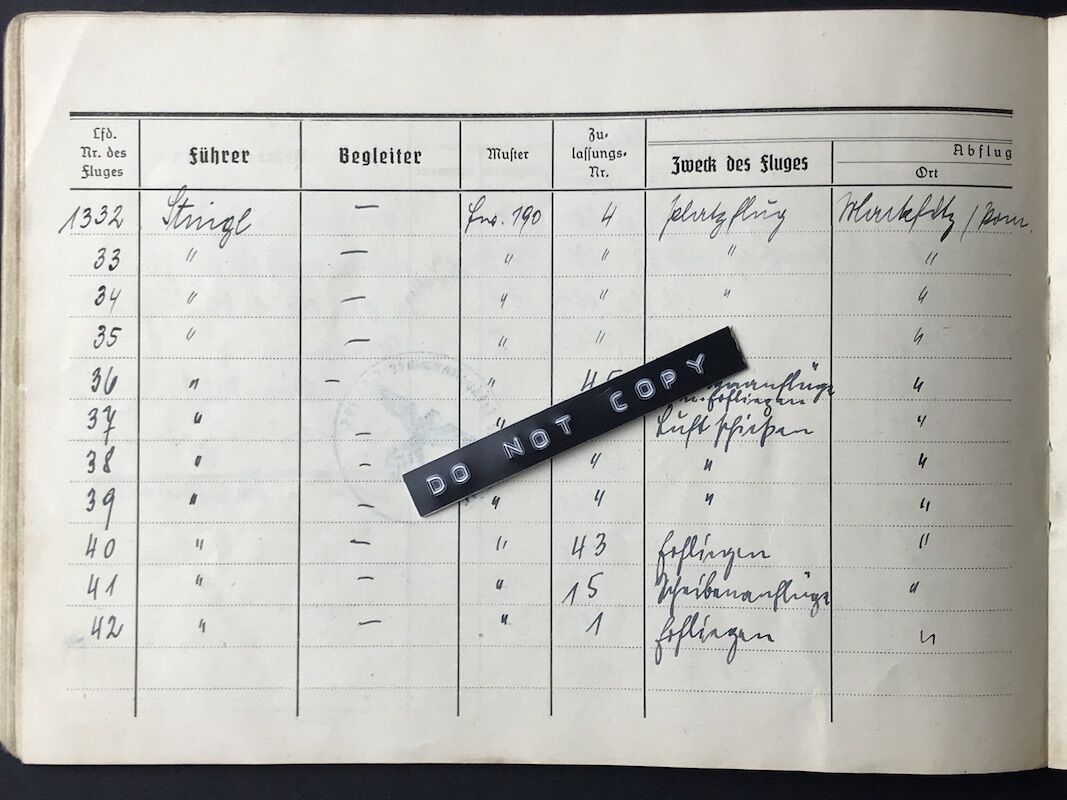 Lfd. Nr. des Fluges Führer Begleiter Muster Zu-lassungs-Nr. Zweck des Fluges Abflug Ort
1332 Stingl — Fw. 190 4 Platzflug Markfitz / Pom.
33 " — " " " "
34 " — " " " "
35 " — " " "
36 " — " "
37 " — " Luftschießen "
38 " — " " "
39 " — " " " "
40 " — " 43 "
41 " — " 15 Scheibenanflüge "
42 " — " 1 "
DO NOT COPY